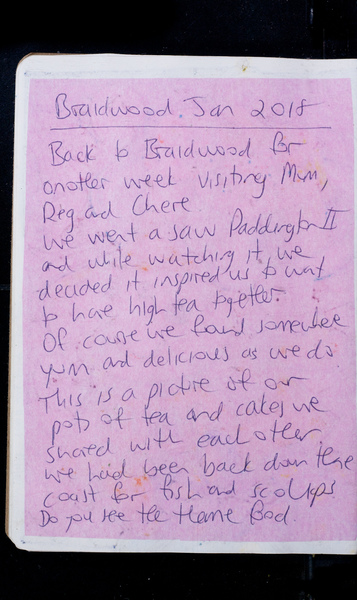 Braidwood. Jan 2018
Back to Braidwood for
another week visiting Mum,
Reg and Chere.
We went a saw Paddington II
and while watching it, we
decided it inspired us to want
to have high tea together.
Of course we found somewhere
yum and delicious as we do
This is a picture of our
pots of tea and cakes we
shared with each other.
We had been back down the
coast for fish and scollups
Do you see the theme Food.